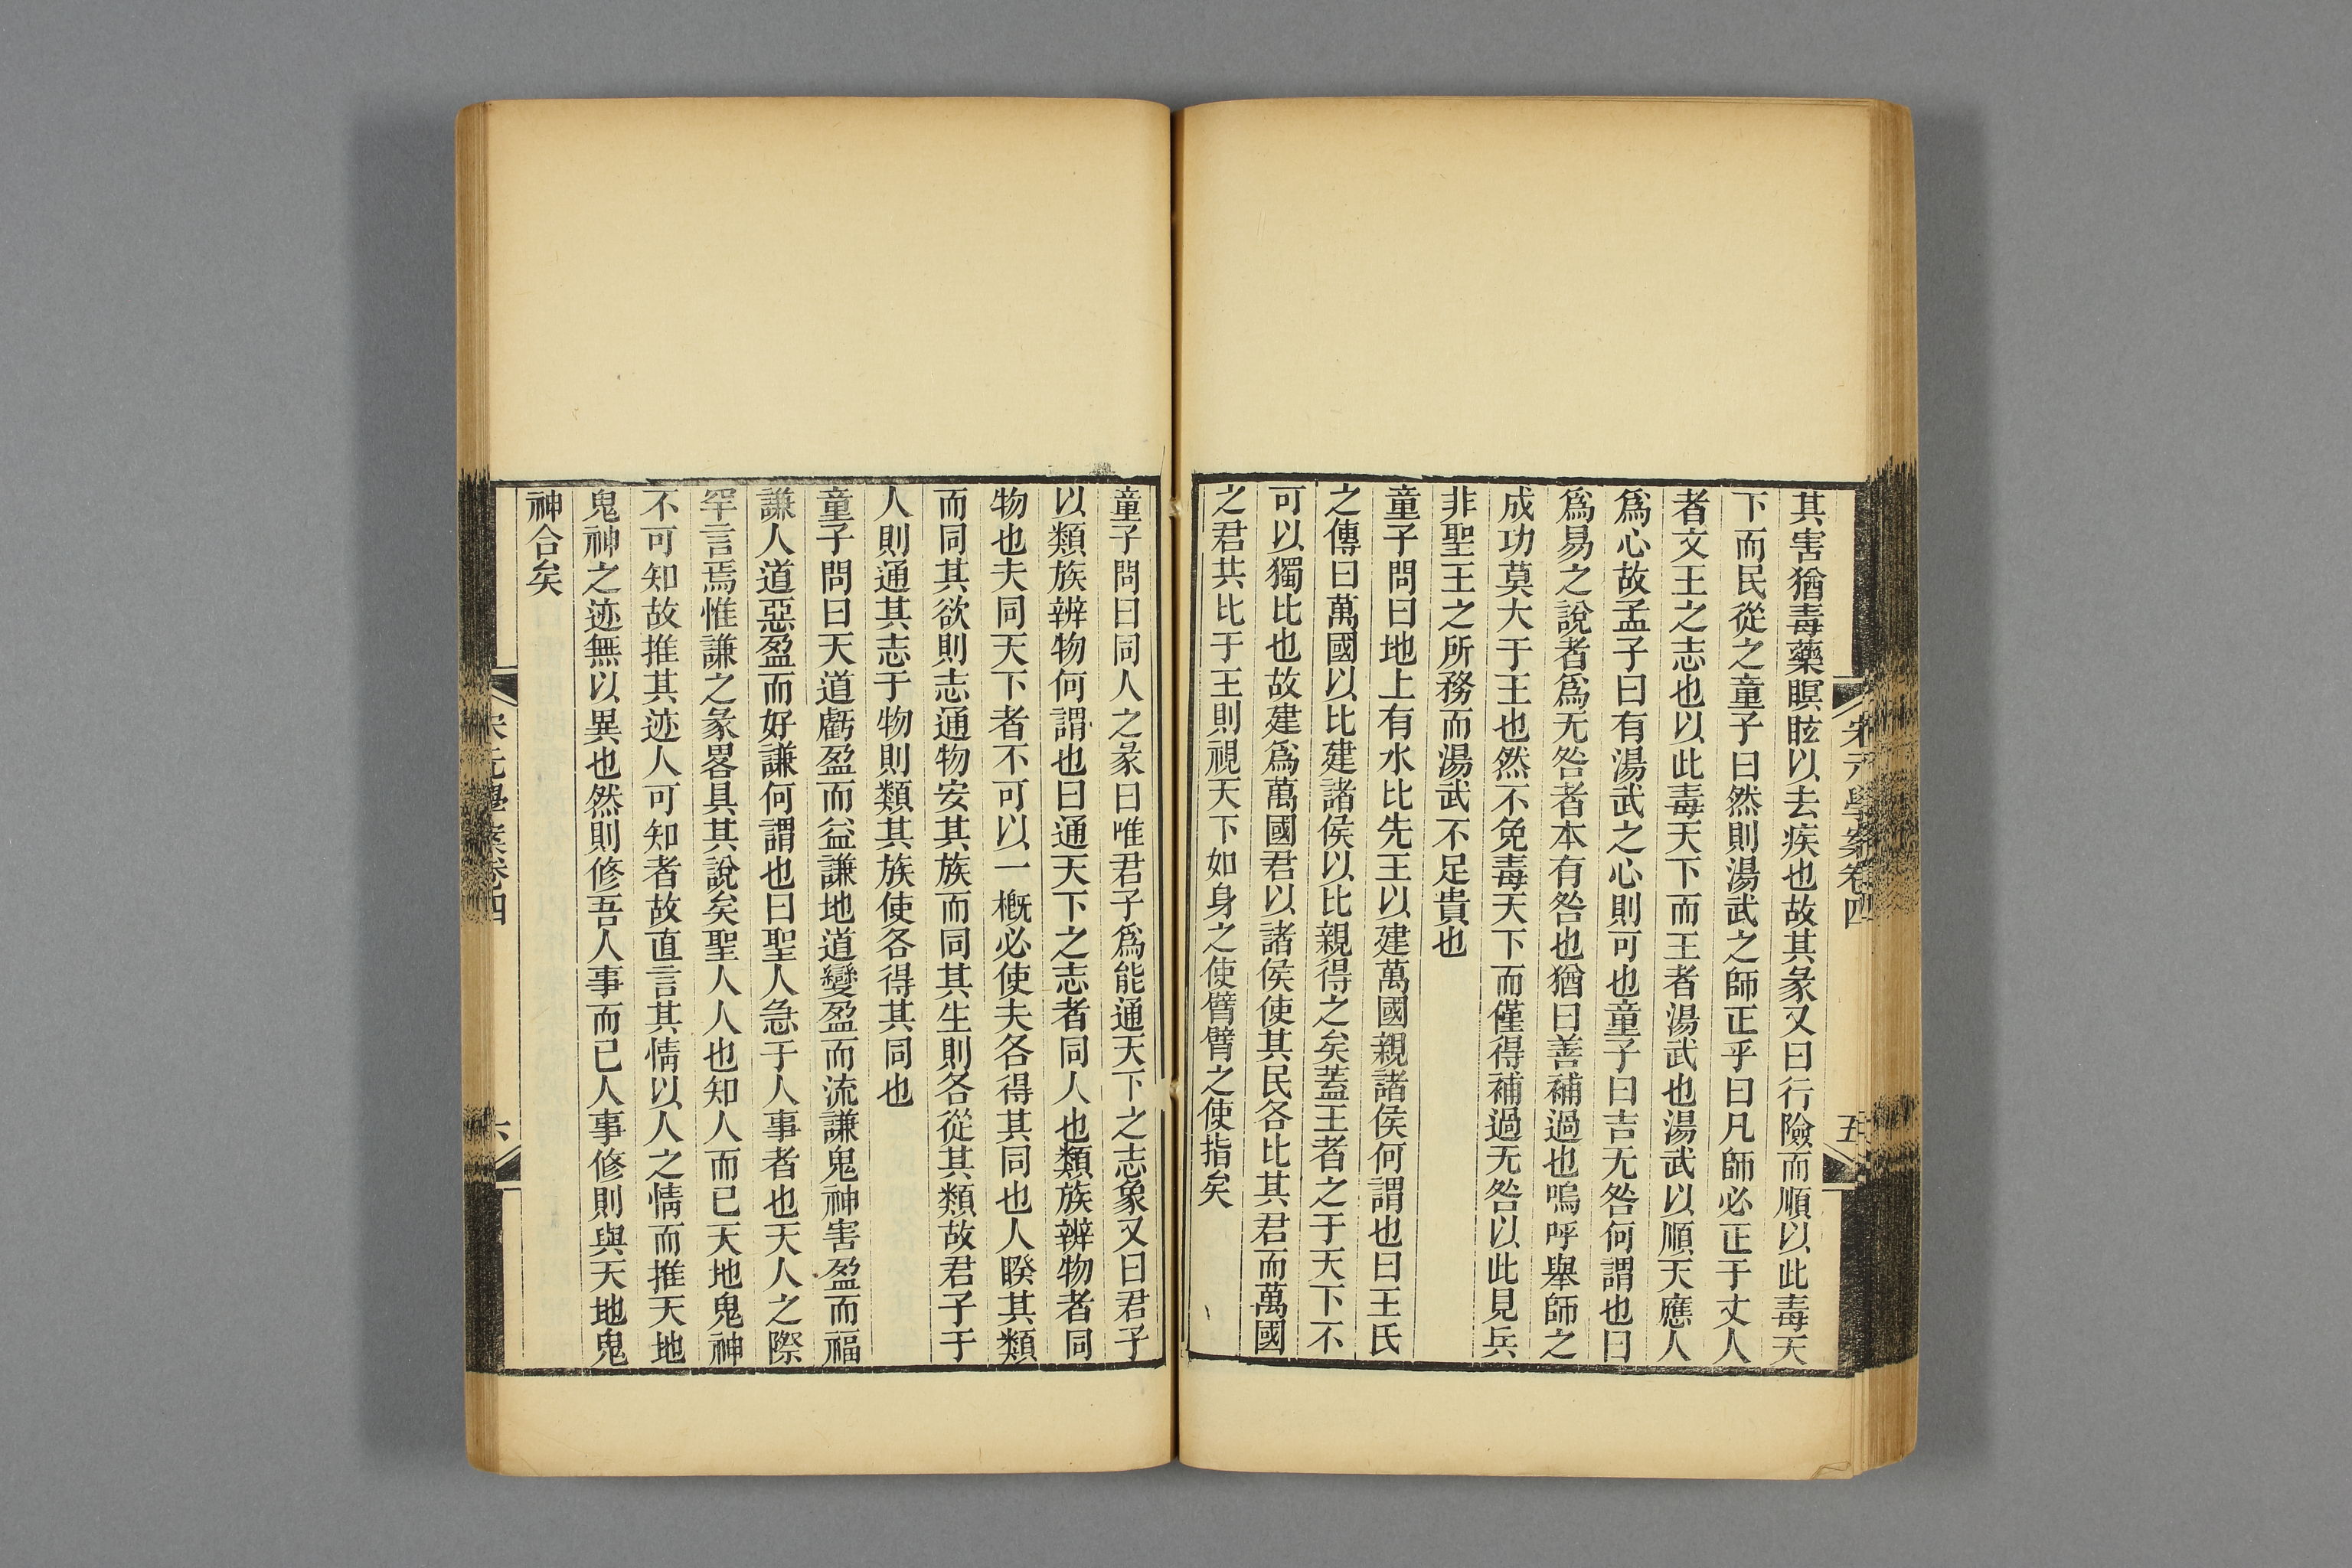 宋元學案卷四
五
其害猶毒藥瞑眩以去疾也故其彖又曰行險而順以此毒天
下而民從之童子曰然則湯武之師正乎曰凡師必正于丈人
者文王之志也以此毒天下而王者湯武也湯武以順天應人
爲心故孟子曰有湯武之心則可也童子曰吉无咎何謂也曰
爲易之說者爲无咎者本有咎也猶曰善補過也嗚呼舉師之
成功莫大于王也然不免毒天下而僅得補過无咎以此見兵
非聖王之所務而湯武不足貴也
童子問曰地上有水比先王以建萬國親諸侯何謂也曰王氏
之傳曰萬國以比建諸侯以比親得之矣蓋王者之于天下不
可以獨比也故建爲萬國君以諸侯使其民各比其君而萬國
之君共比于王則視天下如身之使臂臂之使指矣
童子問曰同人之彖曰唯君子爲能通天下之志象又曰君子
以類族辨物何謂也曰通天下之志者同人也類族辨物者同
物也夫同天下者不可以一概必使夫各得其同也人睽其類
而同其欲則志通物安其族而同其生則各從其類故君子于
人則通其志于物則類其族使各得其同也
童子問曰天道虧盈而益謙地道變盈而流謙鬼神害盈而福
謙人道惡盈而好謙何謂也曰聖人急于人事者也天人之際
罕言焉惟謙之彖畧具其說矣聖人人也知人而已天地鬼神
不可知故推其迹人可知者故直言其情以人之情而推天地
鬼神之迹無以異也然則修吾人事而已人事修則與天地鬼
神合矣
宋元學案卷四
六